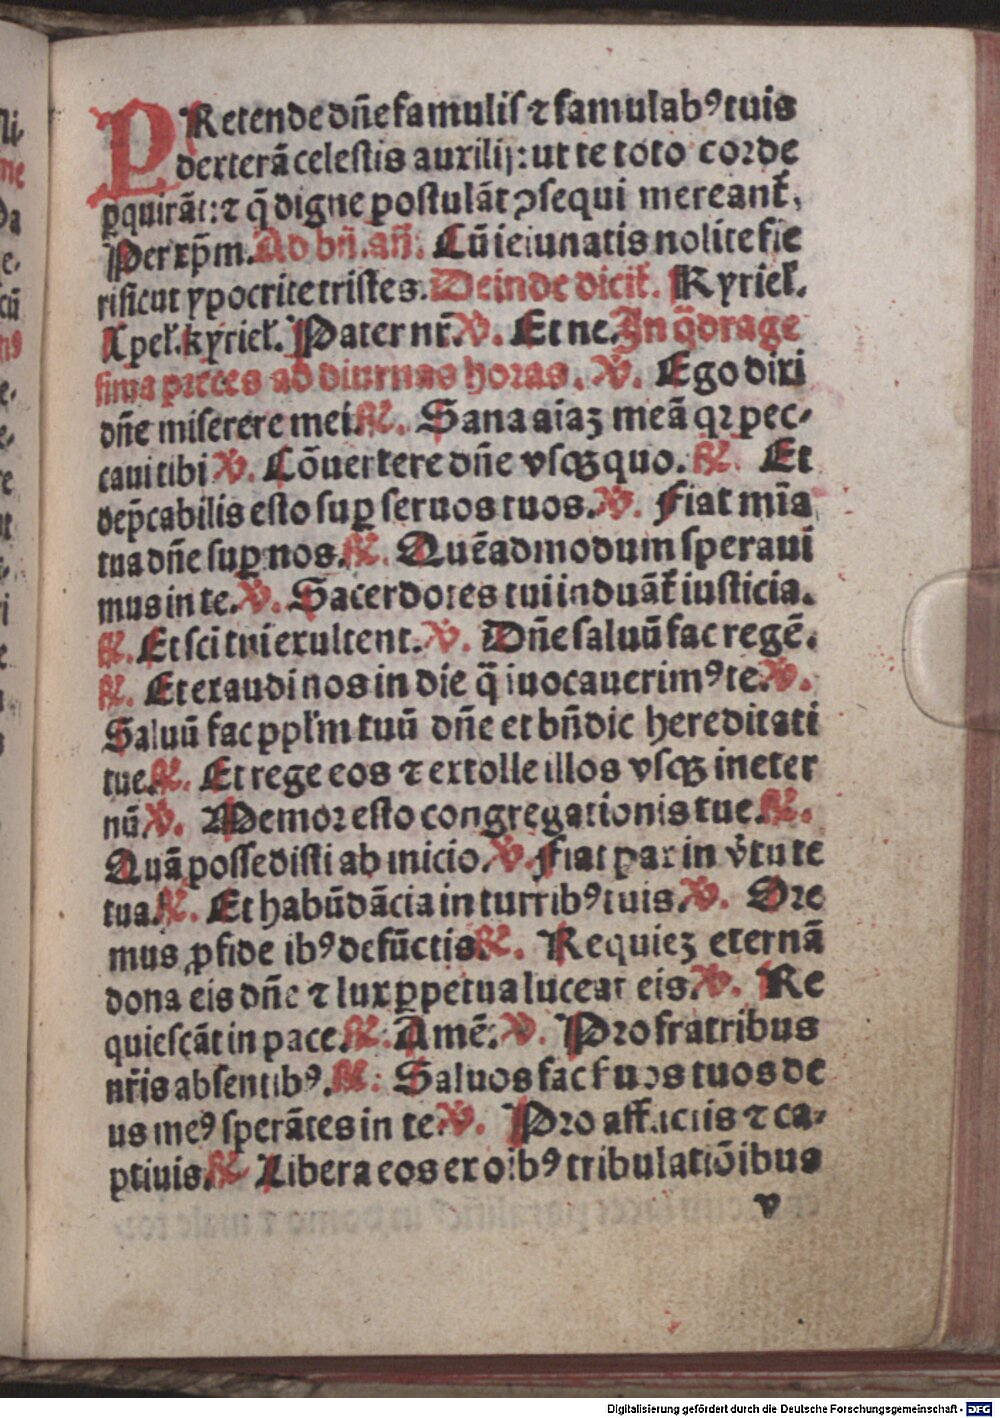 PRetende dñe famulis ⁊ famulabꝰ tuis
dexterā celestis auxilij: ut te toto corde
ꝑquirāt: ⁊ q̄ digne postulāt ↄsequi mereant᷑,
Per xp̄m. Ad bn̄. an̄. Cū ieiunatis nolite fie
ri sicut ypocrite tristes. Deinde dicit᷑. Kyriel̄.
Xpel̄. kyriel̄. Pater nr̄. ℣. Et ne. In q̄drage
sima preces ad diurnas horas. ℣. Ego dixi
dñe miserere mei. ℟. Sana aīaꝫ meā qꝛ pec-
caui tibi ℣. Cōuertere dñe vsqꝫ quo. ℟. Et
dep̄cabilis esto suꝑ seruos tuos. ℣. Fiat mīa
tua dñe suꝑ nos. ℟. Quēadmodum speraui
mus in te. ℣. Sacerdotes tui induāt᷑ iusticia.
℟. Et sci tui exultent. ℣. Dñe saluū fac regē.
℟. Et exaudi nos in die q̄ iuocauerimꝰ te. ℣.
Saluū fac ppl'm tuū dñe et bn̄dic hereditati
tue. ℟. Et rege eos ⁊ extolle illos vsqꝫ in eter
nū. ℣. Memor esto congregationis tue. ℟.
Quā possedisti ab inicio. ℣. Fiat pax in v̄tute
tua. ℟. Et habūdācia in turribꝰ tuis. ℣. Ore
mus ꝓ fide ibꝰ defūctis. ℟. Requieꝫ eternā
dona eis dñe ⁊ lux ꝑpetua luceat eis. ℣. Re
quiescāt in pace. ℟. Amē. ℣. Pro fratribus
nr̄is absentibꝰ. ℟. Saluos fac uos tuos de
us meꝰ sperātes in te. ℣. Pro afflictis ⁊ ca-
ptiuis. ℟. Libera eos ex oībꝰ tribulatiōibus
v
Digitalisierung gefördert durch die Deutsche Forschungsgemeinschaft - DFG